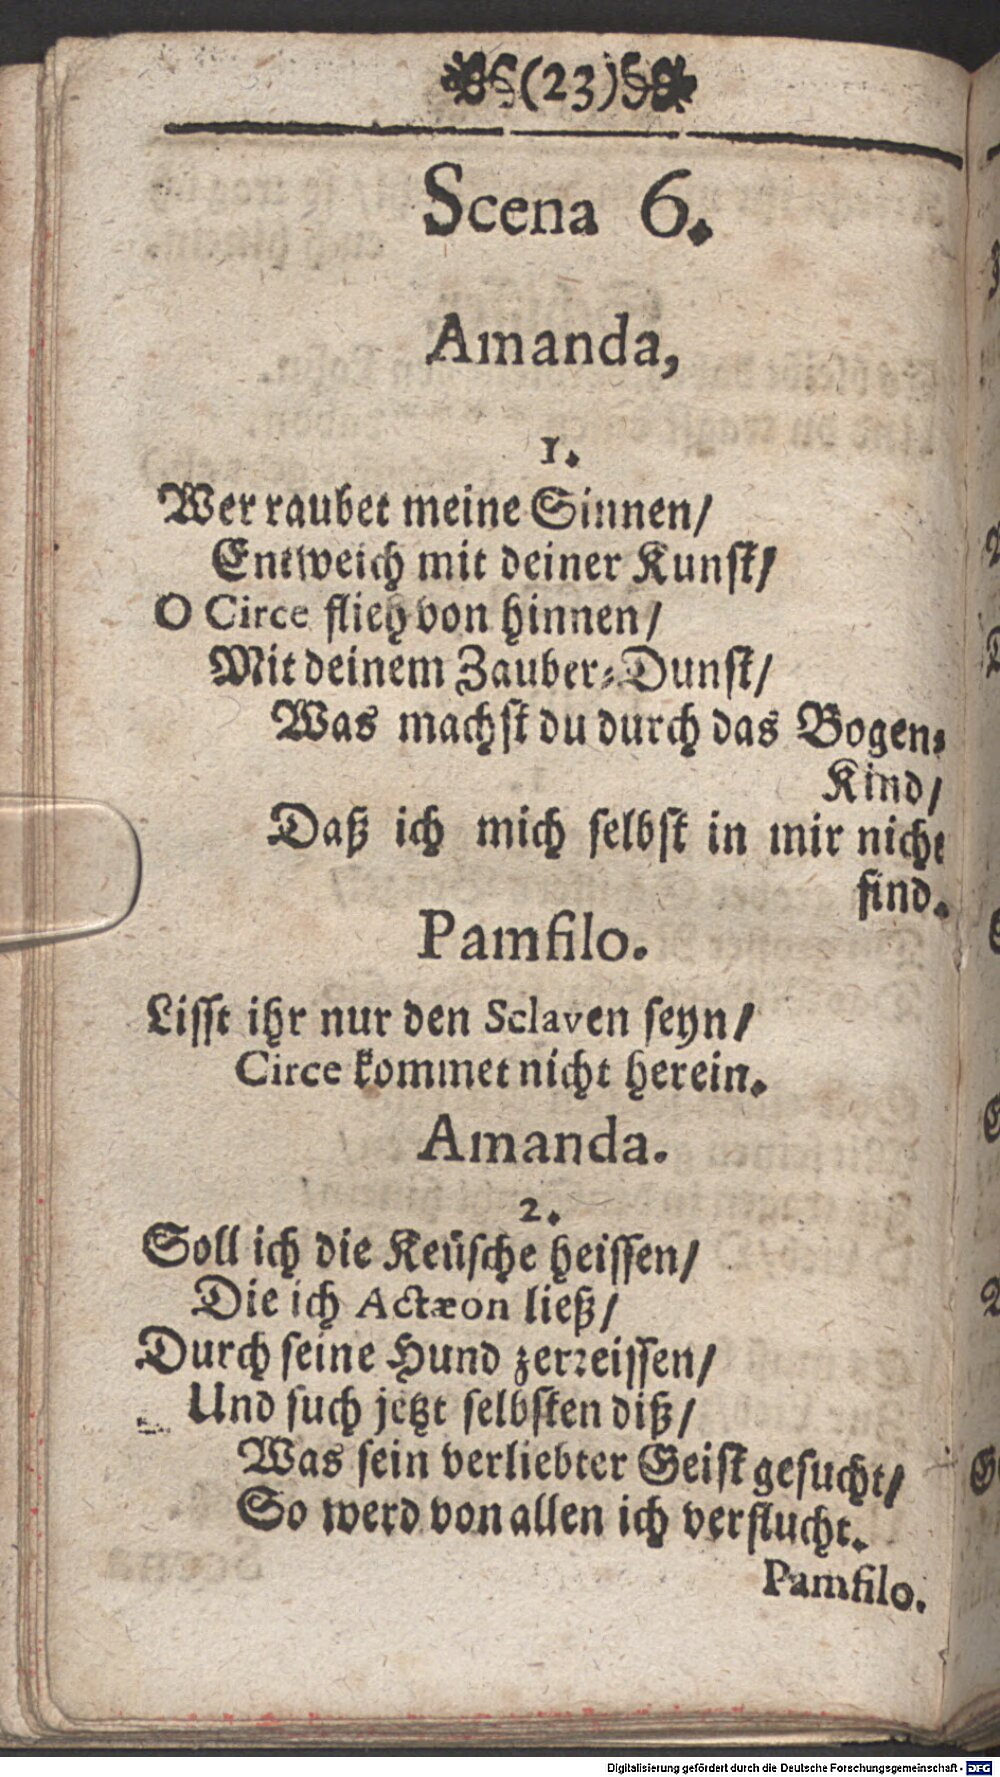 (23)
Scena 6.
Amanda,
1.
Wer raubet meine Sinnen/
Entweich mit deiner Kunst/
O Circe flieh von hinnen/
Mit deinem Zauber-Dunst/
Was machst du durch das Bogen-
Kind/
Daß ich mich selbst in mir nicht
find.
Pamfilo.
Lisst ihr nur den Sclaven seyn/
Circe kommet nicht herein.
Amanda.
2.
Soll ich die Keüsche heissen/
Die ich Actæon ließ/
Durch seine Hund zerreissen/
Und such jetzt selbsten diß/
Was sein verliebter Geist gesucht/
So werd von allen ich verflucht.
Pamfilo.
Digitalisierung gefördert durch die Deutsche Forschungsgemeinschaft - DFG